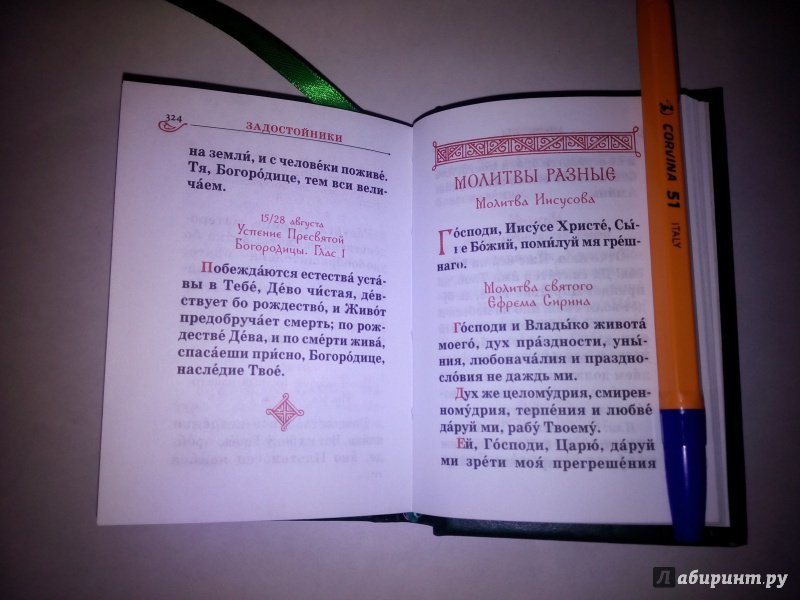 324
ЗАДОСТОЙНИКИ
на земли́, и с челове́ки поживе́.
Тя, Богоро́дице, тем вси вели-
ча́ем.
15/28 августа
Успение Пресвятой
Богородицы. Глас 1
Побежда́ются естества́ уста́-
вы в Тебе́, Де́во чи́стая, де́в-
ствует бо рождество́, и Живо́т
предобруча́ет смерть; по рож-
дестве́ Де́ва, и по сме́рти жива́,
спаса́еши при́сно, Богоро́дице,
насле́дие Твое́.
МОЛИТВЫ РАЗНЫЕ
Молитва Иисусова
Го́споди, Иису́се Христе́, Сы́-
не Бо́жий, поми́луй мя гре́ш-
наго.
Молитва святого
Ефрема Сирина
Го́споди и Влады́ко живота́
моего́, дух пра́здности, уны́-
ния, любонача́лия и праздно-
сло́вия не даждь ми.
Дух же целому́дрия, смирен-
ному́дрия, терпе́ния и любве́
да́руй ми, рабу́ Твоему́.
Ей, Го́споди, Царю́, да́руй
ми зре́ти моя́ прегреше́ния
CORVINA 51 ITALY
Лабиринт.ру